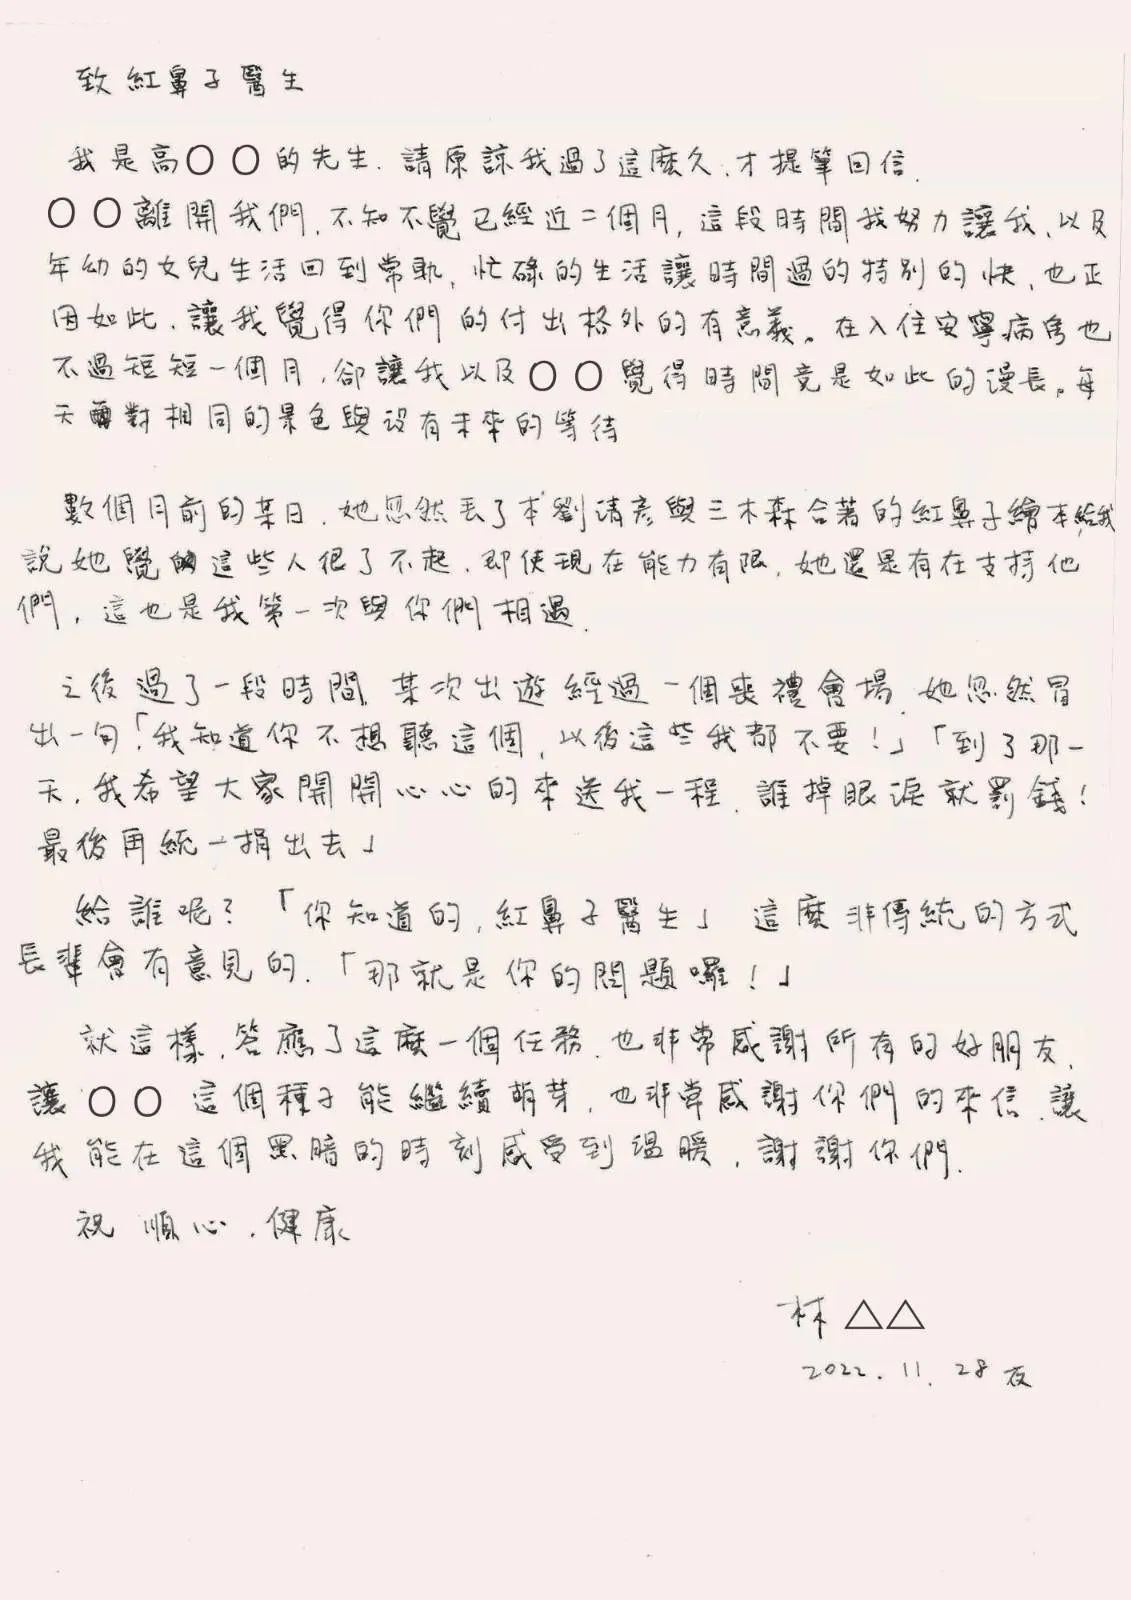 致紅鼻子醫生
我是高〇〇的先生. 請原諒我過了這麼久, 才提筆回信.
〇〇離開我們, 不知不覺已經近二個月, 這段時間我努力讓我、以及
年幼的女兒生活回到常軌, 忙碌的生活讓時間過的特別的快, 也正
因如此, 讓我覺得你們的付出格外的有意義。在入住安寧病房也
不過短短一個月, 卻讓我以及〇〇覺得時間竟是如此的漫長。每
天面對相同的景色與沒有未來的等待
數個月前的某日, 她忽然丟了本劉清彥與三木森合著的紅鼻子繪本給我
說她覺的這些人很了不起, 即使現在能力有限, 她還是有在支持他
們, 這也是我第一次與你們相遇.
之後過了一段時間, 某次出遊經過一個喪禮會場, 她忽然冒
出一句「我知道你不想聽這個, 以後這些我都不要!」「到了那一
天, 我希望大家開開心心的來送我一程, 誰掉眼淚就罰錢!
最後再統一捐出去」
給誰呢? 「你知道的, 紅鼻子醫生」 這麼非傳統的方式
長輩會有意見的. 「那就是你的問題囉!」
就這樣, 答應了這麼一個任務. 也非常感謝所有的好朋友,
讓〇〇這個種子能繼續萌芽, 也非常感謝你們的來信, 讓
我能在這個黑暗的時刻感受到溫暖, 謝謝你們.
祝 順心, 健康
林△△
2022. 11. 28 夜